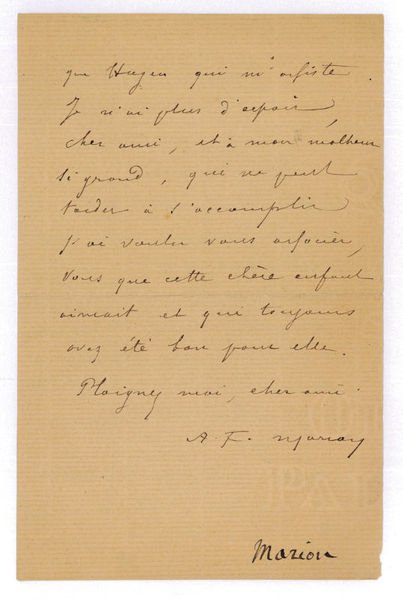 que Hugen qui m'assiste
Je n'ai plus d'espoir,
cher ami, et à mon malheur
si grand, qui ne peut
tarder à s'accomplir
j'ai voulu vous associer,
vous que cette chère enfant
aimait et qui toujours
avez été bon pour elle.
Plaignez moi, cher ami
A. F. Marion
Marion